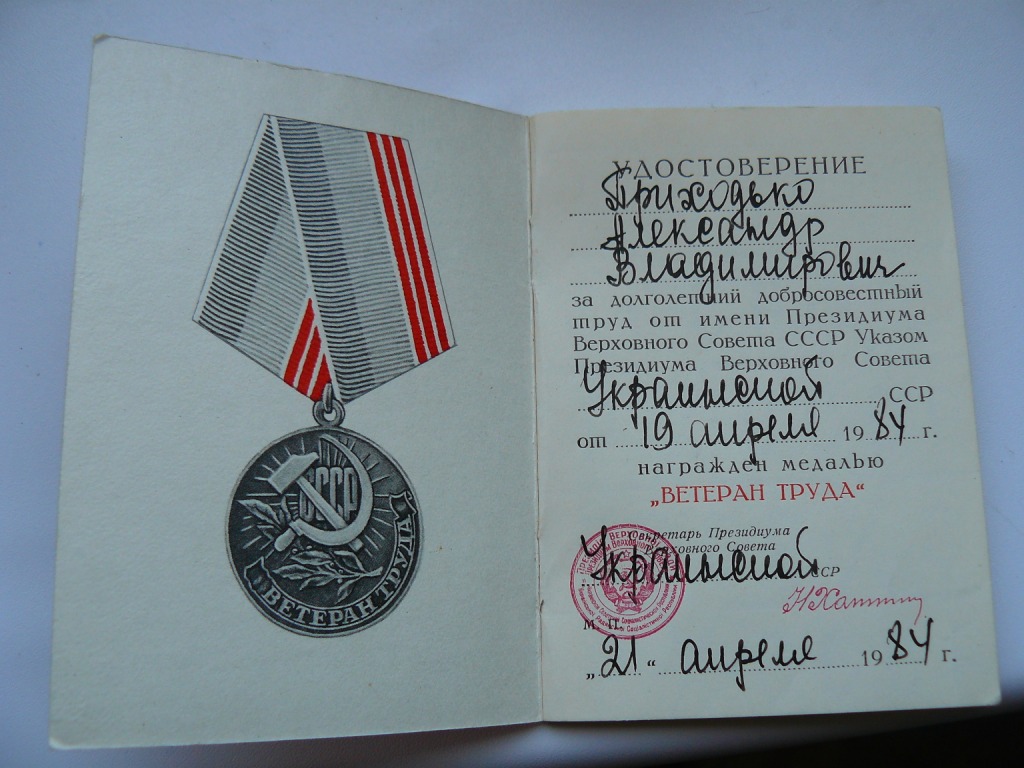 СССР
ВЕТЕРАН ТРУДА
УДОСТОВЕРЕНИЕ
Приходько
Александр
Владимирович
за долголетний добросовестный
труд от имени Президиума
Верховного Совета СССР Указом
Президиума Верховного Совета
Украинской ССР
от 19 апреля 1984 г.
награжден медалью
„ВЕТЕРАН ТРУДА“
Секретарь Президиума
Верховного Совета
Украинской ССР
М. П.
„21“ апреля 1984 г.